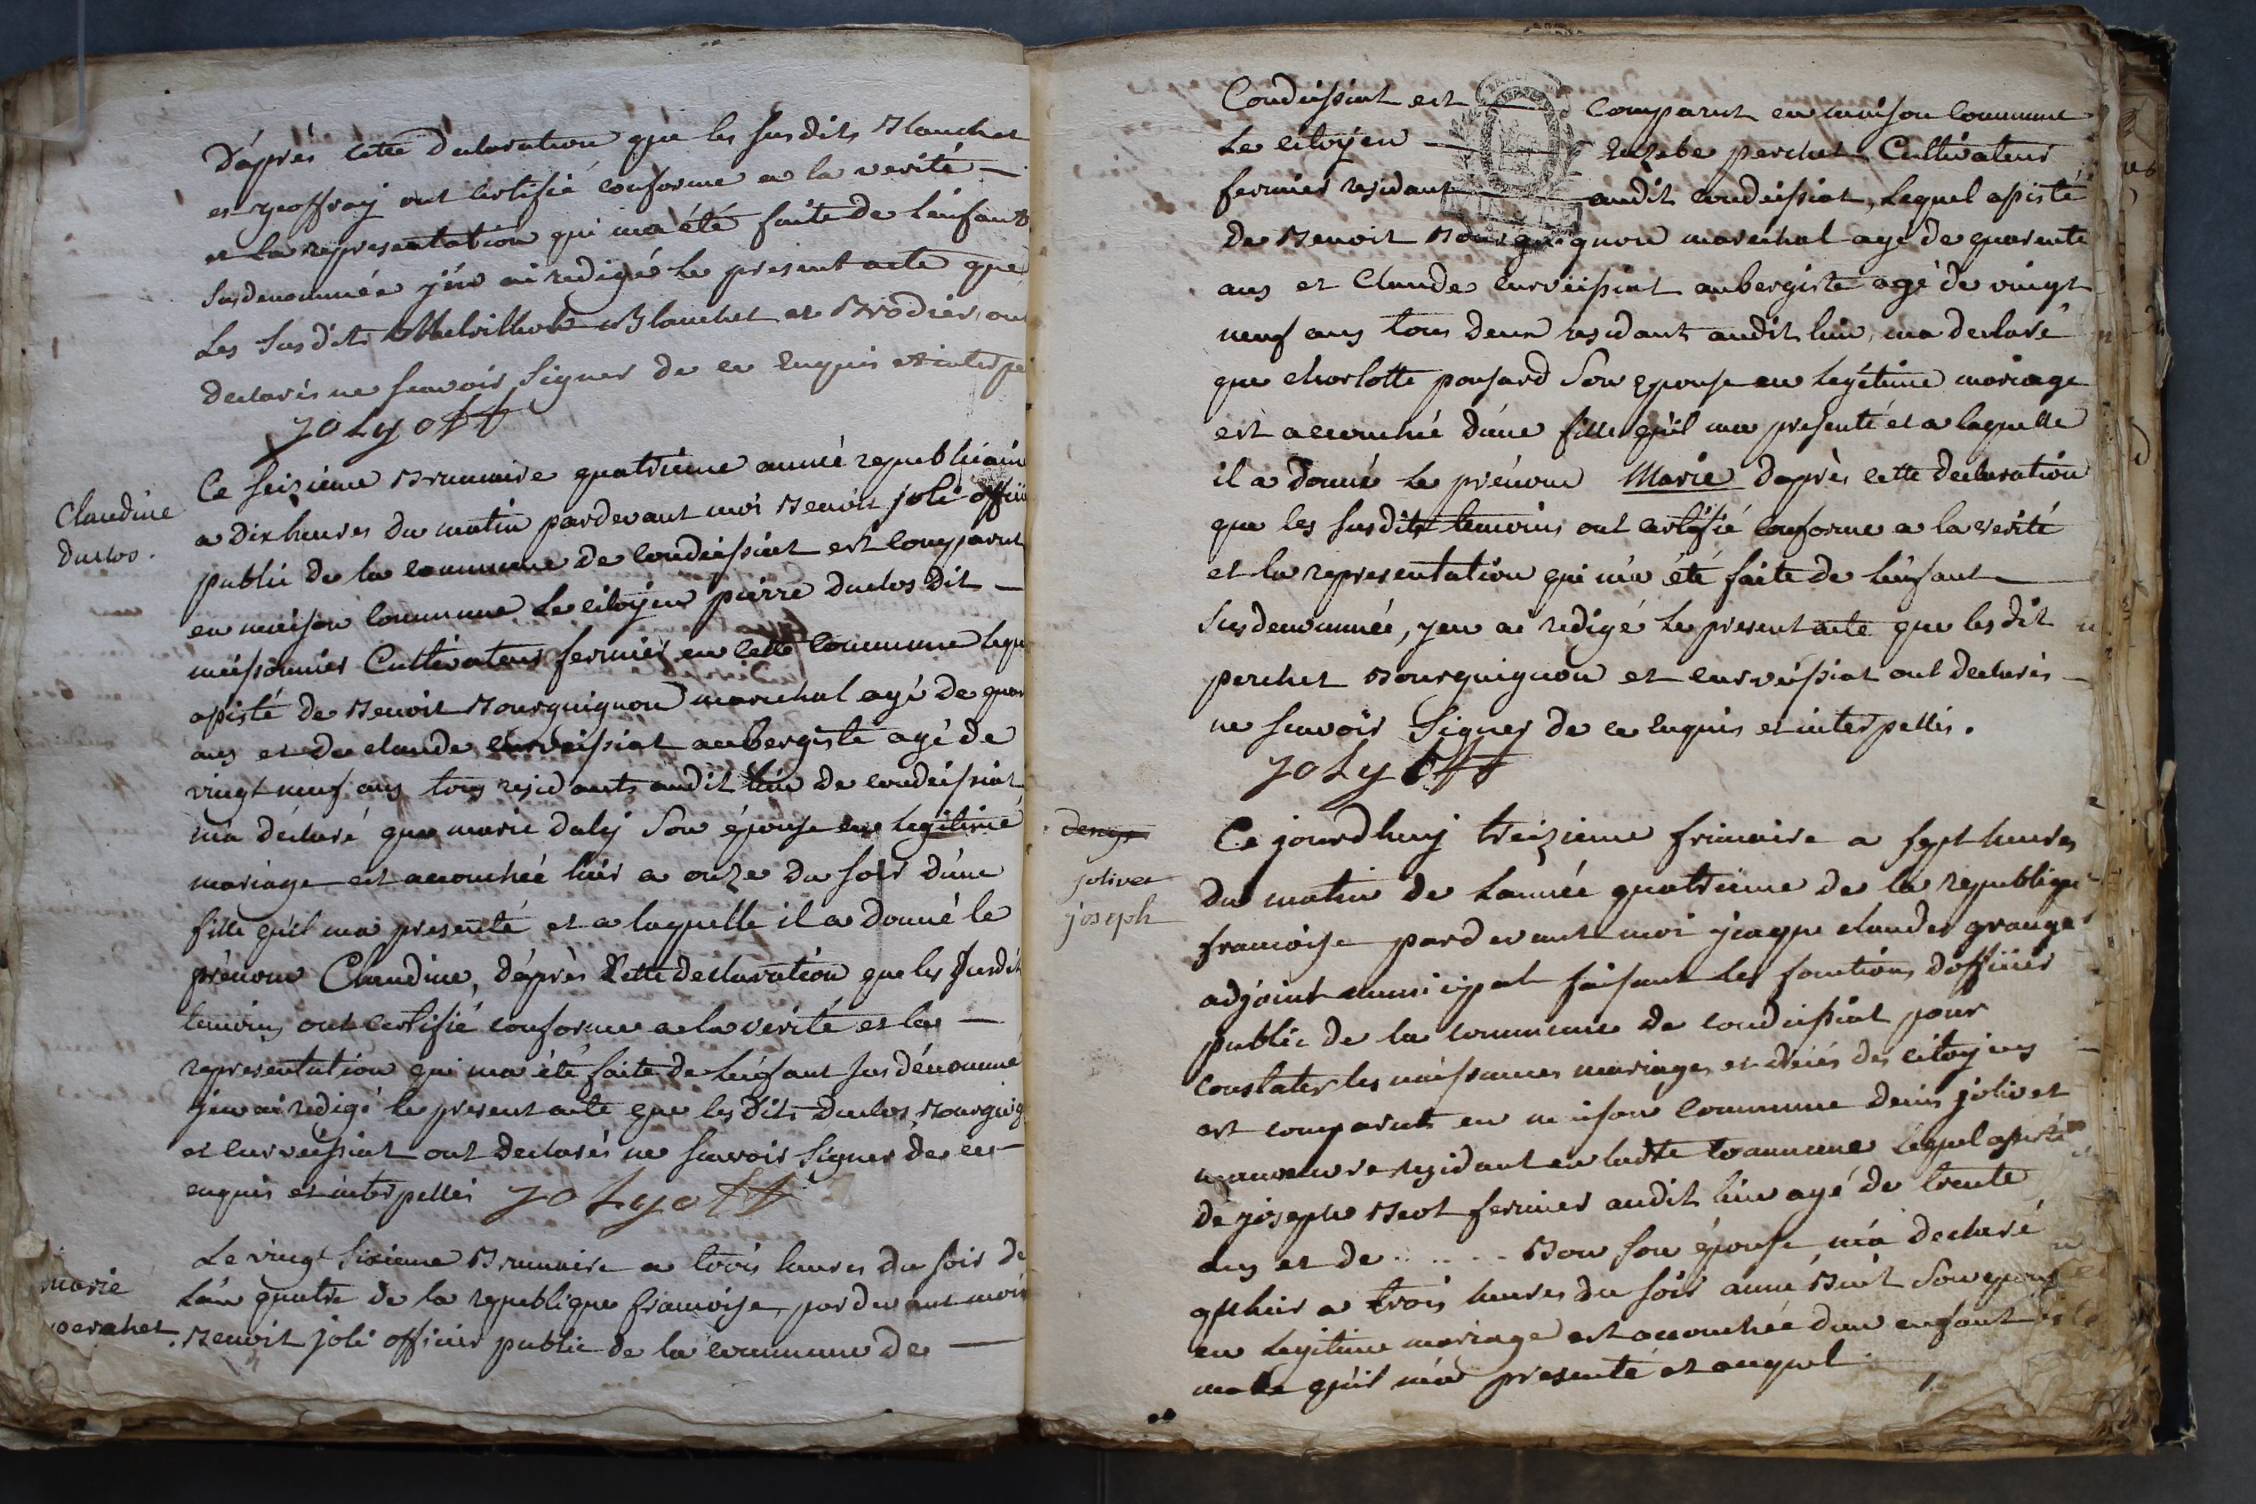 D'après cette declaration que les susdits Blanchet
et geoffray ont certifié conforme a la verité —
et la representation qui m'a été faite de l'enfant
susdenommée j'en ai redigé le present acte que
Les susdits Blanchet et Brodier, ont
declarés ne scavoir signer de ce enquis et interpe
Joly off
Claudine
duclos.
Ce seizieme Brumaire quatrieme année republicaine
a dix heures du matin pardevant moi Benoit joli officier
public de la commune de condeissiat est comparut
en maison commune Le citoyen pierre duclos dit —
meissonnier Cultivateur fermier en cette commune lequ
assisté de Benoit Bourguignon marechal agé de quar
ans et de claude curveissiat aubergiste agé de
vingt neuf ans tous residants audit lieu de condeissiat
m'a déclaré que marie daly son épouse en legitime
mariage est accouchée hier a onze du soir d'une
fille qu'il m'a presenté et a laquelle il a donné le
prénom Claudine, d'après cette declaration que les susdit
temoins ont certifié conforme a la verité et la —
representation qui m'a été faite de l'enfant susdénommé
j'en ai redigé le present acte que les dits duclos Bourguig
et curveissiat ont declarés ne scavoir signer de ce —
enquis et interpellés Joly off
marie
perchet.
Le vingt sixieme Brumaire a trois heures du soir de
L'an quatre de la republique francoise, pardevant moi
Benoit joli officier public de la commune de —
Condeissiat est comparut en maison commune
Le citoyen — Euzebe perchet Cultivateur
fermier residant audit condeissiat, Lequel assisté
de Benoit Bourguignon marechal agé de quarente
ans et Claude curveissiat aubergiste agé de vingt
neuf ans tous deux residant audit lieu, m'a declaré
que charlotte ponsard son epouse en legitime mariage
est accouchée d'une fille qu'il m'a presenté et a laquelle
il a donné le prénom Marie d'après cette declaration
que les susdits temoins ont certifié conforme a la verité
et la representation qui m'a été faite de l'enfant —
susdenommée, j'en ai redigé le present acte que lesdit
perchet Bourguignon et curveissiat ont declarés —
ne scavoir signer de ce enquis et interpellés.
Joly off
denys
jolivet
joseph
Ce jourdhuy treizieme frimaire a sept heures
du matin de L'année quatrieme de la republique
francoise pardevant moi jacque claude grange
adjoint municipal faisant les fonctions d'officier
public de la commune de condeissiat pour
constater les naissances mariages et décés des citoyens
est comparut en maison commune denis jolivet
manoeuvre residant en ladte commune Lequel assisté
de joseph Beot fermier audit lieu agé de trente
ans et de . . . . . Bon son épouse m'a declaré
qu'hier a trois heures du soir anne son epouse
en legitime mariage est accouchée d'un enfant
male qu'il m'a presenté et auquel